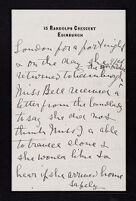 15 RANDOLPH CRESCENT
EDINBURGH
London for a fortnight
& on the day she
returned to Edinburgh
Miss Bell received a
letter from the landlady
to say she does not
think Miss J is able
to travel alone &
she would like to
hear if she arrived home
safely